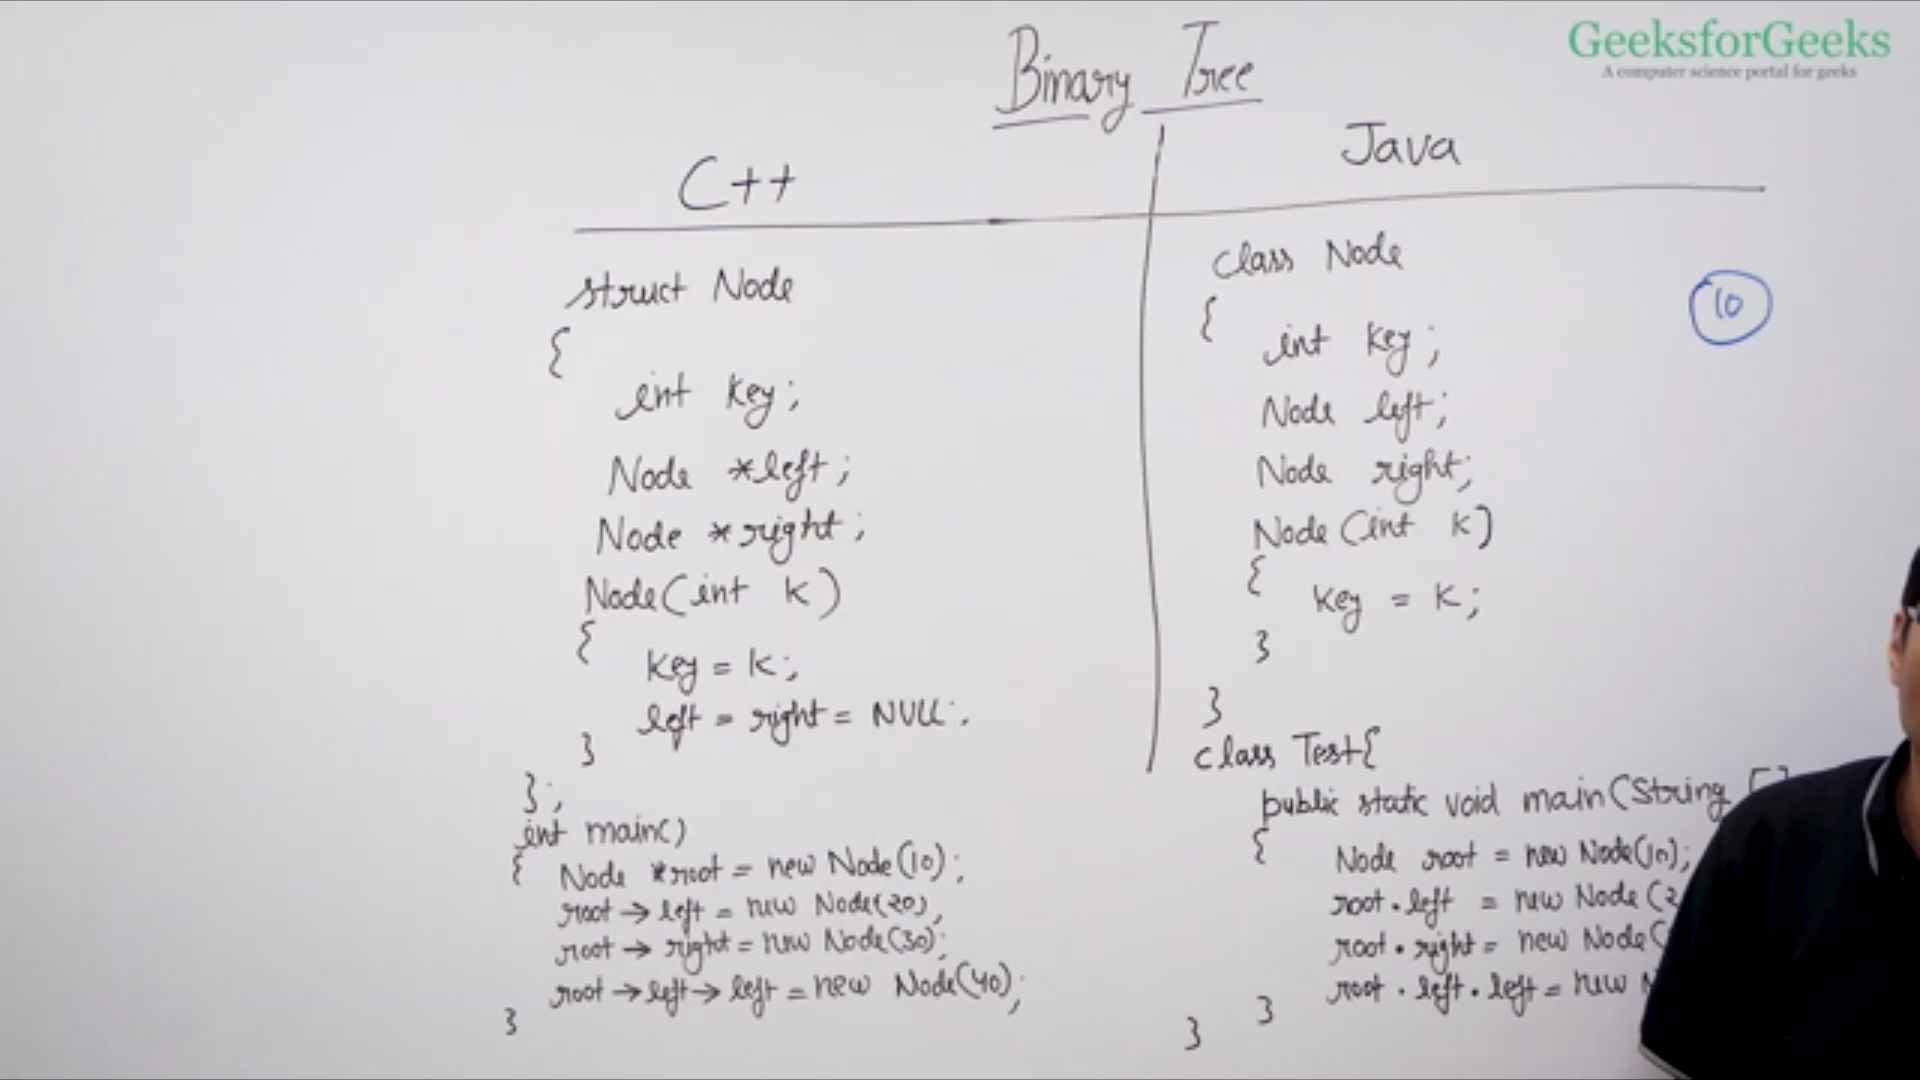 GeeksforGeeks
A computer science portal for geeks
Binary Tree
C++
struct Node
{
int key;
Node *left;
Node *right;
Node(int k)
{
key = k;
left = right = NULL;
}
};
int main()
{ Node *root = new Node(10);
root → left = new Node(20),
root → right = new Node(30);
root → left → left = new Node(40);
}
Java
class Node
{
int key;
Node left;
Node right;
Node(int k)
{
key = k;
}
}
class Test{
public static void main(String []
{
Node root = new Node(10);
root.left = new Node(2
root.right = new Node(
root.left.left = new N
}
}
10